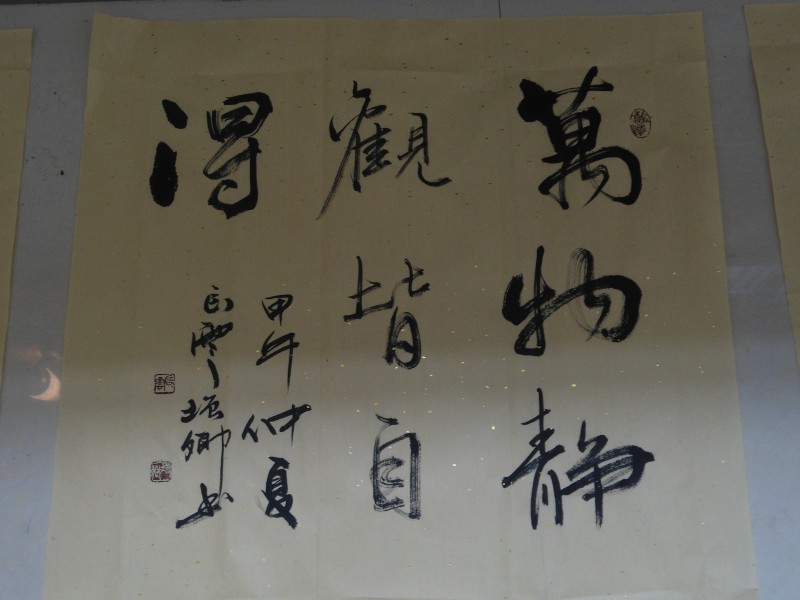 萬物靜
觀皆自
得
甲午仲夏
卿书